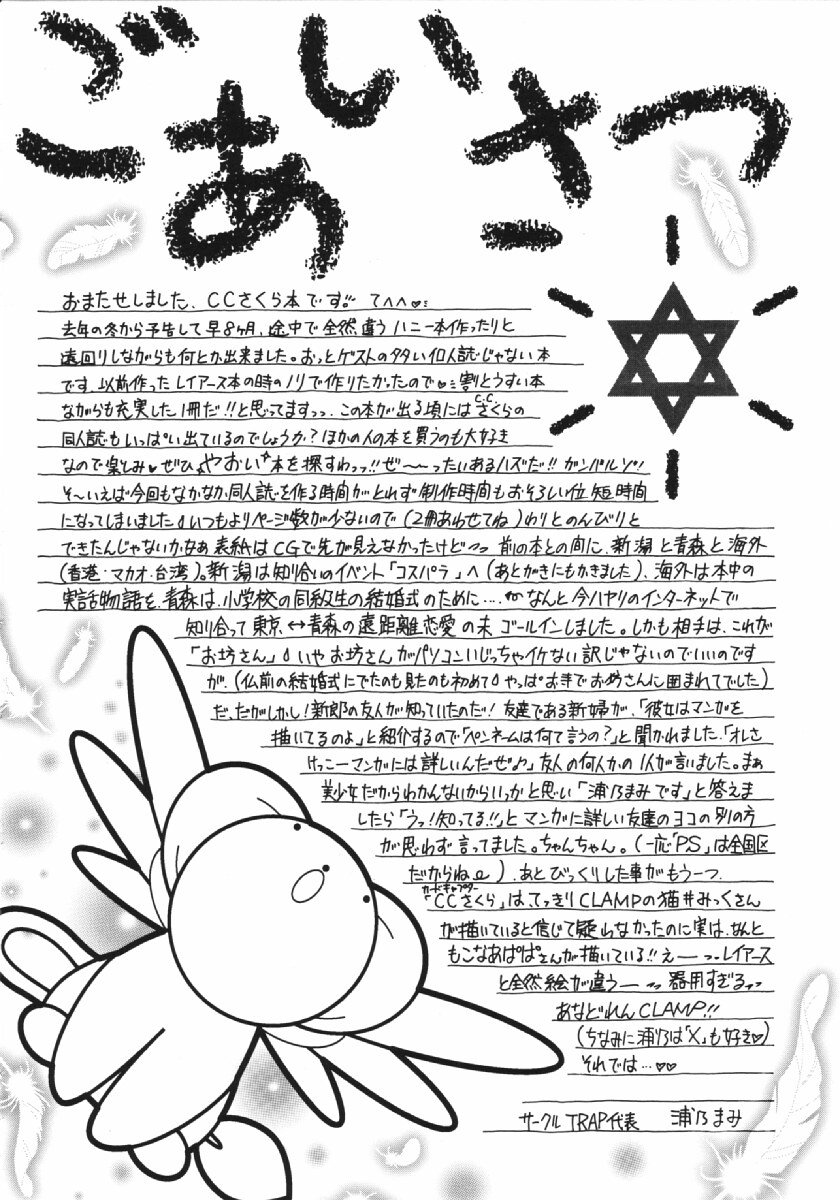 ごあいさつ
おまたせしました、CCさくら本です!! て^^♡
去年の冬から予告して早8ヶ月、途中で全然違うハニー本作ったりと
遠回りしながらも何とか出来ました。おっとゲストの多い個人誌じゃない本
です、以前作ったレイアース本の時のノリで作りたかったので♡割とうすい本
ながらも充実した1冊だ!!と思ってますっっ、この本が出る頃にはC.C.さくらの
同人誌もいっぱい出ているのでしょうか?ほかの人の本を買うのも大好き
なので楽しみ♡ぜひ、やおい本を探すわっっ!!ぜ〜〜ったいあるハズだ!!ガンバルゾ!
そ〜いえば今回もなかなか同人誌を作る時間がとれず制作時間もおそろしい位短時間
になってしまいましたいつもよりページ数が少ないので(2冊あわせてね)わりとのんびりと
できたんじゃないかなぁ表紙はCGで先が見えなかったけどっっ前の本との間に、新潟と青森と海外
(香港・マカオ・台湾)。新潟は知り合いのイベント「コスパラ」へ(あとがきにもかきました)、海外は本中の
実話物語を、青森は、小学校の同級生の結婚式のために….なんと今ハヤリのインターネットで
知り合って東京↔青森の遠距離恋愛の末ゴールインしました。しかも相手は、これが
「お坊さん」いやお坊さんがパソコンいじっちゃイケない訳じゃないのでいいのです
が、(仏前の結婚式にでたのも見たのも初めてやっぱお寺でお坊さんに囲まれてでした)
だ、だがしかし!新郎の友人が知っていたのだ!友達である新婦が、「彼女はマンガを
描いてるのよ」と紹介するので「ペンネームは何て言うの?」と聞かれました、「オレさ
けっこーマンガには詳しいんだぜ♪」友人の何人かの1人が言いました。まぁ
美少女だからわかんないからいっかと思い「浦乃まみです」と答えま
したら「うっ!知ってる!!」とマンガに詳しい友達のヨコの別の方
が思わず言ってました。ちゃんちゃん。(一応「PS」は全国区
だからね)、あとびっくりした事がもう一つ、
「CCさくら」カードキャプターは、てっきりCLAMPの猫井みっくさん
が描いていると信じて疑わなかったのに実は、なんと
もこなあぱぱさんが描いている!!えーっっレイアース
と全然絵が違うーっっ器用すぎるっっ
あなどれんCLAMP!!
(ちなみに浦乃は「X」も好き♡)
それでは…♡♡
サークルTRAP代表 浦乃まみ